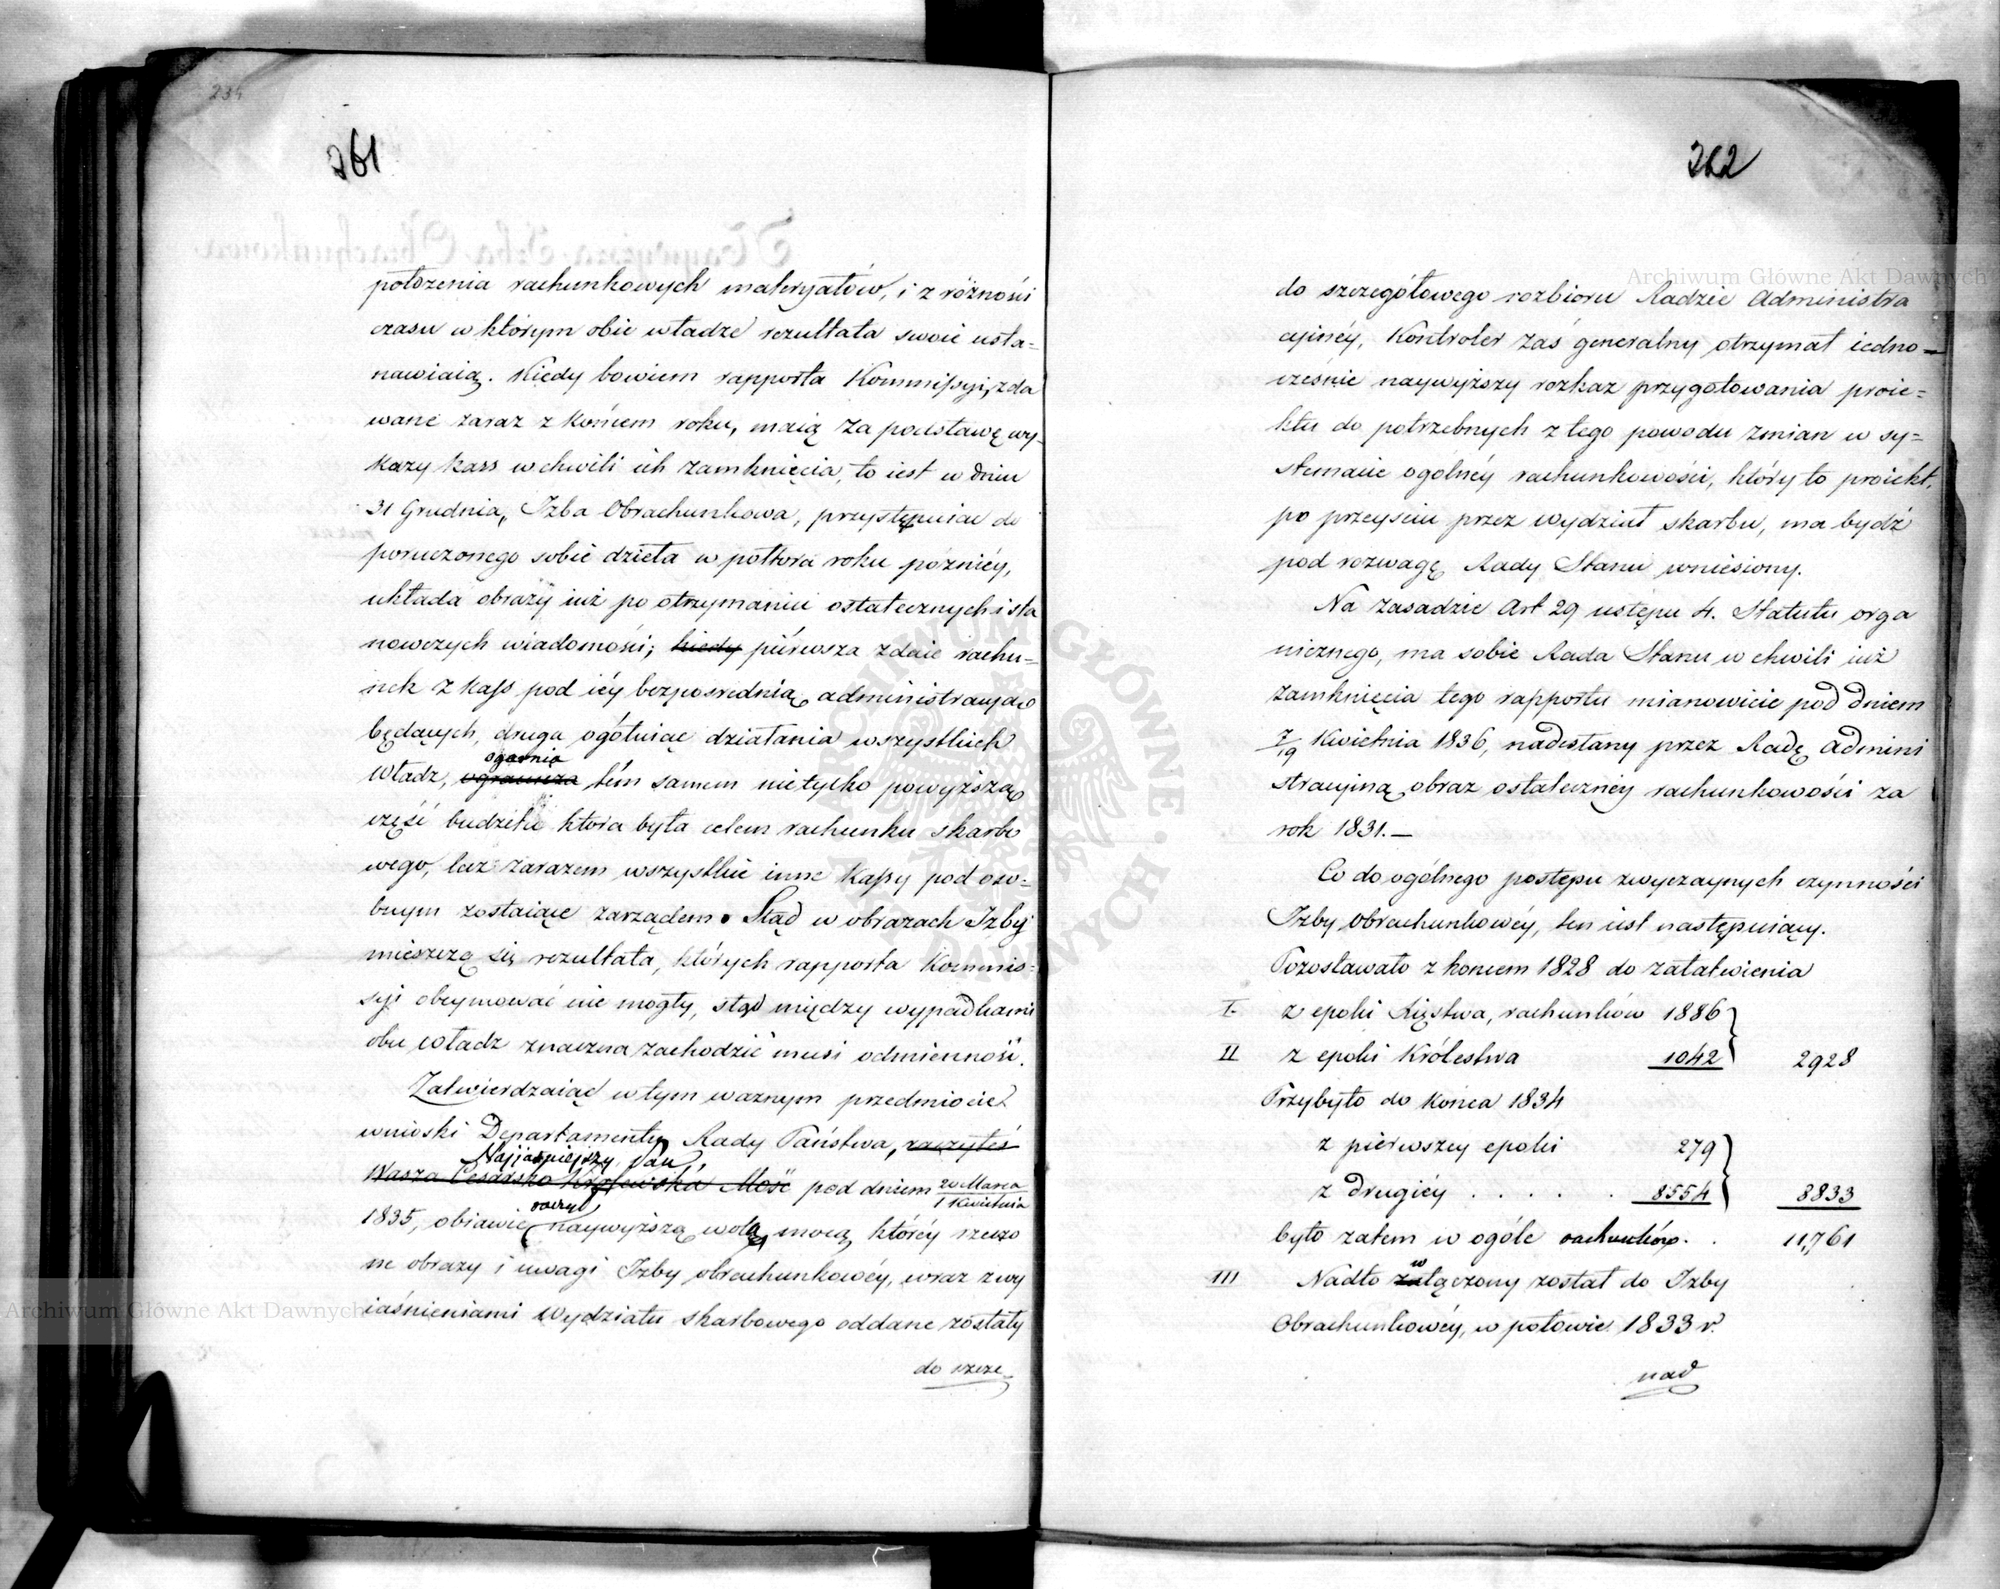 234
261
położenia rachunkowych materyałów, i z różności
czasu w którym obie władze rezultata swoie usta=
nawiaią. Kiedy bowiem rapporta Kommissyi, zda
wane zaraz z końcem roku, maią za podstawę wy-
kazy kass w chwili ich zamknięcia, to iest w dniu
31 Grudnia, Izba Obrachunkowa, przystępuiąc do
poruczonego sobie dzieła w półtora roku późniéy,
układa obrazy iuż po otrzymaniu ostatecznych i sta
nowczych wiadomości; kiedy piérwsza zdaie rachu=
nek z kass pod iéy bezpośrednią administracyą
będących, druga ogólniąc działania wszystkich
ogarnia
Władz, ogranicza tém samem nietylko powyższą
część budżetu która była celem rachunku skarbo
wego, lecz zarazem wszystkie inne Kassy pod oso=
bnym zostaiące zarządem. Stąd w obrazach Izby
mieszczą się rezultata, których rapporta Kommis=
syi obeymować nie mogły, stąd między wypadkami
obu Władz znaczna zachodzić musi odmienność.
Zatwierdzaiąc w tym ważnym przedmiocie
wnioski Departamentu Rady Państwa, raczyłeś
Najjaśniejszy Pan,
Wasza Cesarsko Królewska Mość pod dniem 20 Marca / 1 Kwietnia
raczył
1835, obiawić naywyższą wolą, mocą któréy rzeczo
ne obrazy i uwagi Izby obrachunkowéy, wraz z wy
iaśnieniami Wydziału skarbowego oddane zostały
do szcze
262
do szczegółowego rozbioru Radzie Administra
cyinéy, Kontroler zaś generalny otrzymał iedno-
cześnie naywyższy rozkaz przygotowania proie=
ktu do potrzebnych z tego powodu zmian w sy=
stemacie ogólnéy rachunkowości, który to proiekt,
po przeyściu przez wydział skarbu, ma bydź
pod rozwagę Rady Stanu wniesiony.
Na zasadzie Art 29 ustępu 4. Statutu orga
nicznego, ma sobie Rada Stanu w chwili iuż
zamknięcia tego rapportu mianowicie pod dniem
7/19 Kwietnia 1836, nadesłany przez Radę Admini
stracyiną obraz ostatecznéy rachunkowości za
rok 1831.—
Co do ogólnego postępu zwyczaynych czynności
Izby Obrachunkowéy, ten iest następuiący.
Pozostawało z końcem 1828 do załatwienia
I. z epoki Xięstwa, rachunków 1886
II z epoki Królestwa 1042 2928
Przybyło do końca 1834
z pierwszey epoki 279
z drugiéy . . . . . 8554 8833
było zatem w ogóle rachunków . . 11,761
w
III Nadto załączony został do Izby
Obrachunkowéy, w połowie 1833 r.
nad
Archiwum Główne Akt Dawnych
Archiwum Główne Akt Dawnych
ARCHIWUM GŁÓWNE AKT DAWNYCH